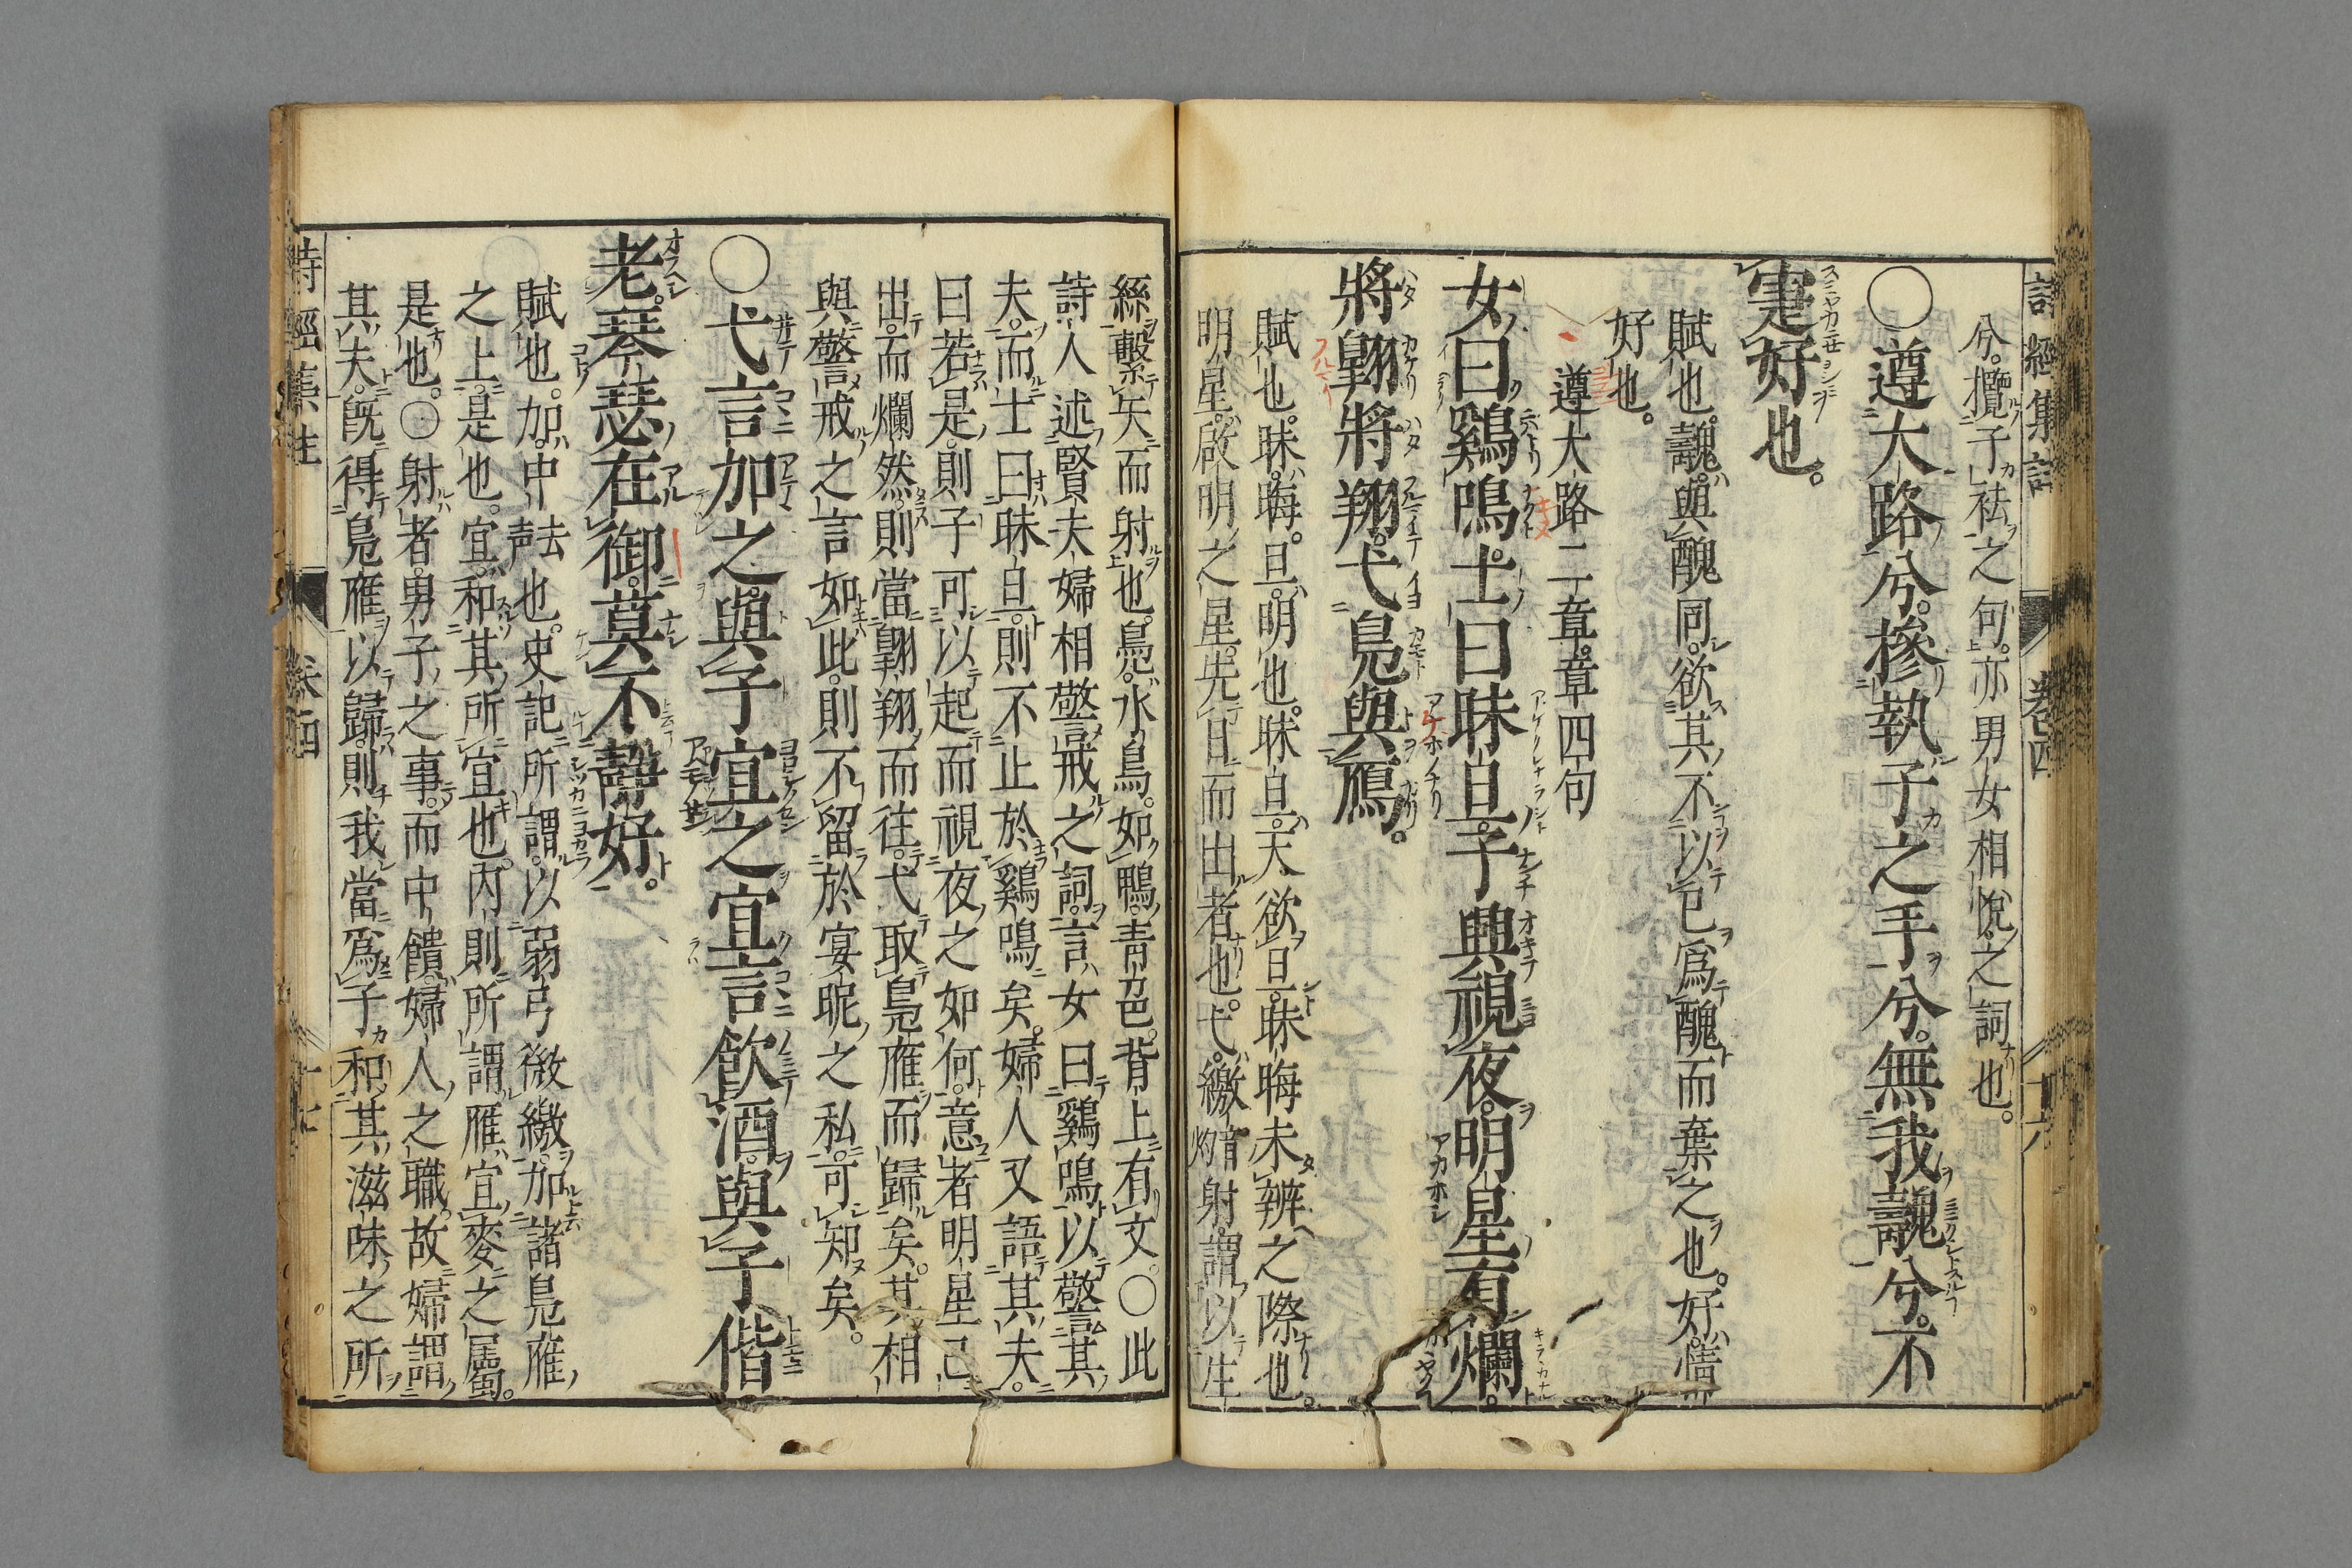 詩經集註 卷四 十六
兮攬子袪之句亦男女相悅之詞也
○遵大路兮摻執子之手兮無我魗兮不
寁好也
賦也魗與醜同欲其不以已爲醜而棄之也好情
好也
遵大路二章章四句
女曰鷄鳴士曰昧旦子興視夜明星有爛
將翶將翔弋鳧與鴈
賦也昧晦旦明也昧旦天欲旦昧晦未辨之際也
明星啟明之星先日而出者也弋繳音灼射謂以生
絲繫矢而射也鳧水鳥如鴨青色背上有文○此
詩人述賢夫婦相警戒之詞言女曰鷄鳴以警其
夫而士曰昧旦則不止於鷄鳴矣婦人又語其夫
曰若是則子可以起而視夜之如何意者明星已
出而爛然則當翶翔而往弋取鳧雁而歸矣其相
與警戒之言如此則不留於宴昵之私可知矣
○弋言加之與子宜之宜言飮酒與子偕
老琴瑟在御莫不靜好
賦也加中去声也史記所謂以弱弓微繳加諸鳧雁
之上是也宜和其所宜也內則所謂雁宜麥之屬
是也○射者男子之事而中饋婦人之職故婦謂
其夫旣得鳧雁以歸則我當爲子和其滋味之所
詩經集註 卷四 十七